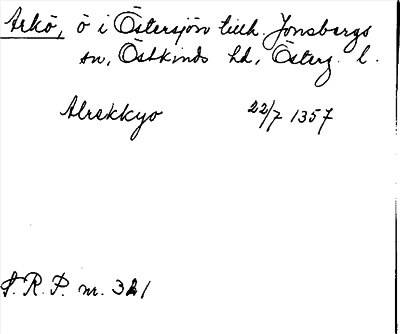 Arkö, ö i Östersjön tillh. Jonsbergs
sn, Östkinds hd, Österg. l.
Alrekkyo 22/7 1357
S.R.P. nr. 321